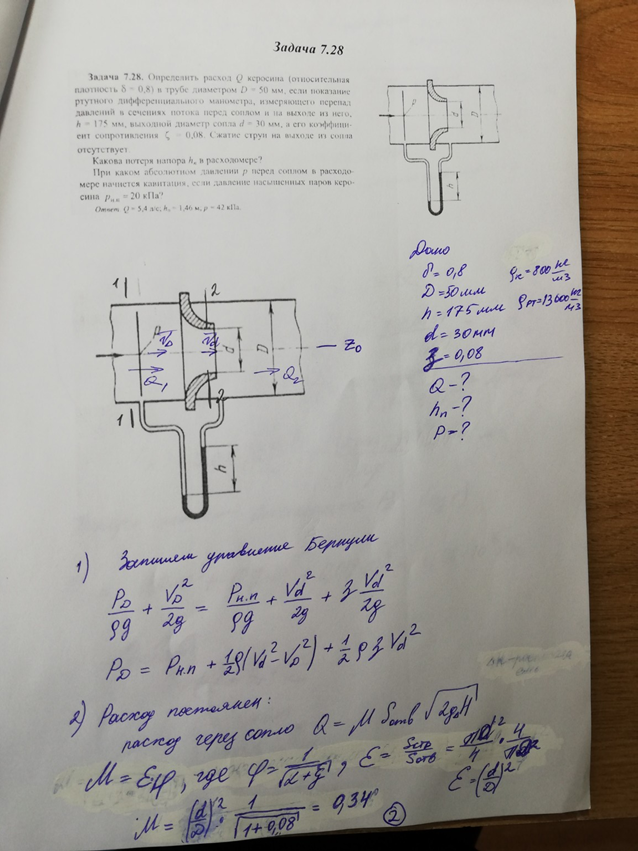 Задача 7.28
Задача 7.28. Определить расход Q керосина (относительная
плотность δ = 0,8) в трубе диаметром D = 50 мм, если показание
ртутного дифференциального манометра, измеряющего перепад
давлений в сечениях потока перед соплом и на выходе из него,
h = 175 мм, выходной диаметр сопла d = 30 мм, а его коэффици-
ент сопротивления ζ = 0,08. Сжатие струи на выходе из сопла
отсутствует.
Какова потеря напора hп в расходомере?
При каком абсолютном давлении p перед соплом в расходо-
мере начнется кавитация, если давление насыщенных паров керо-
сина pн.п = 20 кПа?
Ответ. Q = 5,4 л/с; hп = 1,46 м, p = 42 кПа.
p
d
D
h
Дано
δ = 0,8 ρк = 800 кг/м3
D = 50 мм
h = 175 мм ρрт = 13600 кг/м3
d = 30 мм
ζ = 0,08
Q - ?
hп - ?
P - ?
1
2
p
VD
Vd
d
D
z0
Q1
Q2
1
2
h
1) Запишем уравнение Бернули
PD/ρg + VD²/2g = Pн.п/ρg + Vd²/2g + ζ Vd²/2g
PD = Pн.п + 1/2 ρ(Vd² - VD²) + 1/2 ρ ζ Vd²
2) Расход постоянен:
расход через сопло Q = M Sотв √2gH
M = εφ, где φ = 1/√α + ζ, ε = Sстр/Sотв = πd²/4 · 4/πD²
ε = (d/D)²
M = (d/D)² · 1/√1 + 0,08 = 0,34
2